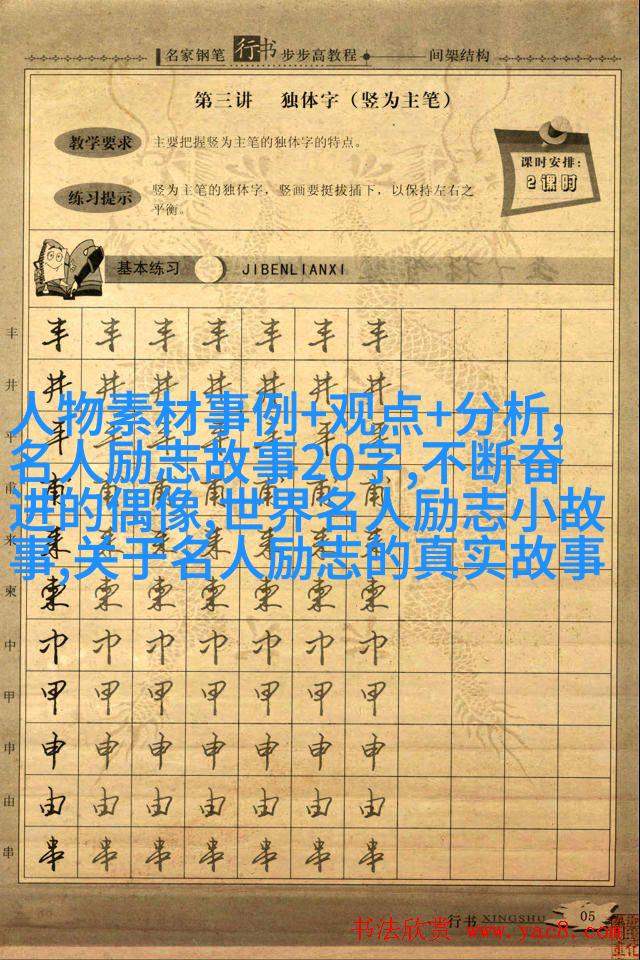 名家钢笔行书步步高教程 间架结构
第三讲 独体字（竖为主笔）
教学要求 主要把握竖为主笔的独体字的特点。
课时安排：
2课时
练习提示 竖为主笔的独体字，竖画要挺拔插下，以保持左右之
平衡。
基本练习 JIBENLIANXI
丰 丰 丰 丰 丰 丰 丰 丰
井 井 井 井 井 井 井 井
人物素材事例+观点+分析,
平
名人励志故事20字,不断奋
甫
进的偶像,世界名人励志小故
来
事,关于名人励志的真实故事
柬 柬 柬 柬 柬 柬 柬 柬
中 中 中 中 中 中 中 中
甲 甲 甲 甲 甲 甲 甲 甲
申 申 申 申 申 申 申 申
由 由 由 由 由 由 由 由
串 串 串 串 串 串 串 串
行书 XINGSHU 05
书法欣赏 www.yac8.com